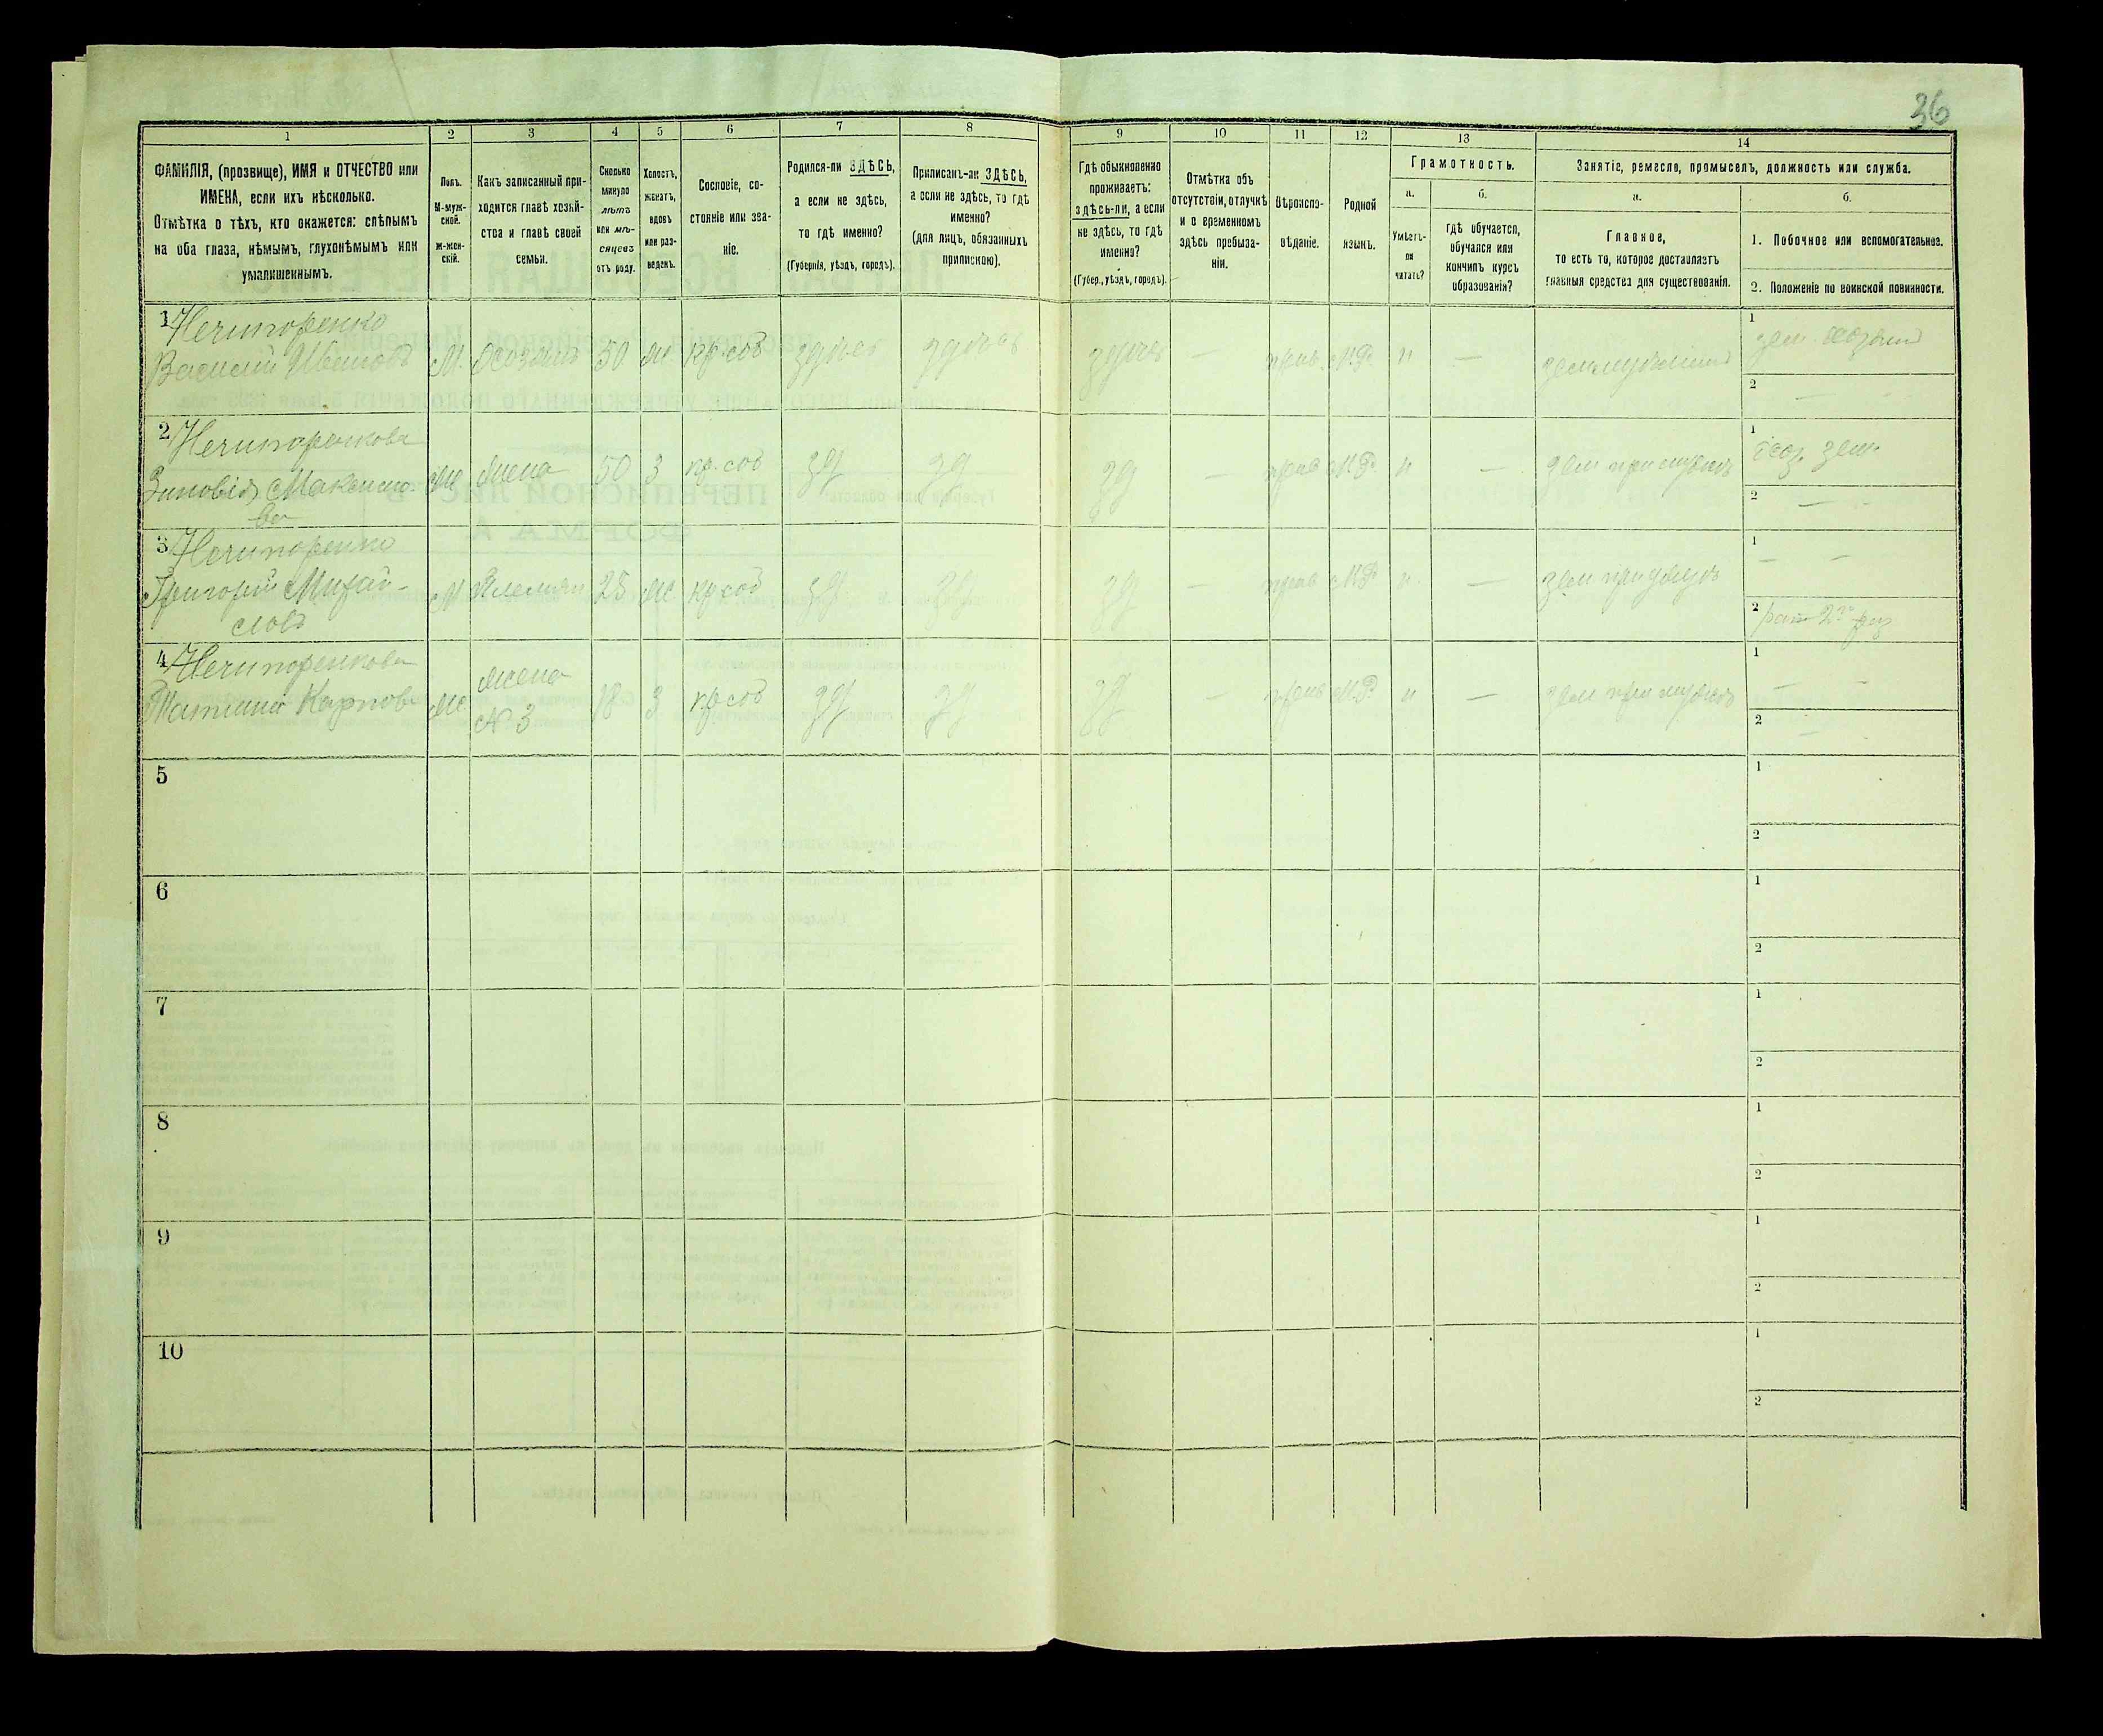 36
1
2
3
4
5
6
7
8
9
10
11
12
13
14
ФАМИЛІЯ, (прозвище), ИМЯ и ОТЧЕСТВО или
ИМЕНА, если ихъ нѣсколько.
Отмѣтка о тѣхъ, кто окажется: слѣпымъ
на оба глаза, нѣмымъ, глухонѣмымъ или
умалишеннымъ.
Полъ.
М-муж-
ской.
Ж-жен-
скій.
Какъ записанный при-
ходится главѣ хозяй-
ства и главѣ своей
семьи.
Сколько
минуло
лѣтъ
или мѣ-
сяцевъ
отъ роду.
Холостъ,
женатъ,
вдовъ
или раз-
веденъ.
Сословіе, со-
стояніе или зва-
ніе.
Родился-ли ЗДѢСЬ,
а если не здѣсь,
то гдѣ именно?
(Губернія, уѣздъ, городъ).
Приписанъ-ли ЗДѢСЬ,
а если не здѣсь, то гдѣ
именно?
(для лицъ, обязанныхъ
припискою).
Гдѣ обыкновенно
проживаетъ:
здѣсь-ли, а если
не здѣсь, то гдѣ
именно?
(Губер., уѣздъ, городъ).
Отмѣтка объ
отсутствіи, отлучкѣ
и о временномъ
здѣсь пребыва-
ніи.
Вѣроиспо-
вѣданіе.
Родной
языкъ.
Грамотность.
а.
б.
Умѣетъ-
ли
читать?
Гдѣ обучается,
обучался или
кончилъ курсъ
образованія?
Занятіе, ремесло, промыселъ, должность или служба.
а.
б.
Главное,
то есть то, которое доставляетъ
главныя средства для существованія.
1. Побочное или вспомогательное.
2. Положеніе по воинской повинности.
1 Нечипоренко
Василий Ивановъ М. Хозяинъ 50 ж кр. соб здѣсь здѣсь здѣсь — прав. М.Р. н —
1 зем. хозяин
2 —
2 Нечипоренкова
Зиновія Максимо-
ва
Ж жена 50 з кр. соб зд зд зд — прав М.Р. н — зем при мужѣ
1 хоз. зем.
2 —
3 Нечипоренко
Григорій Михай-
ловъ
М Племян 25 ж кр соб зд зд зд — прав М.Р. н. —
1 —
2 рат 2го раз
4 Нечипоренкова
Карпова Ж жена
№ 3
18 з кр соб зд зд зд — прав М.Р. н — зем при мужѣ
1 —
2 —
5
1
2
6
1
2
7
1
2
8
1
2
9
1
2
10
1
2